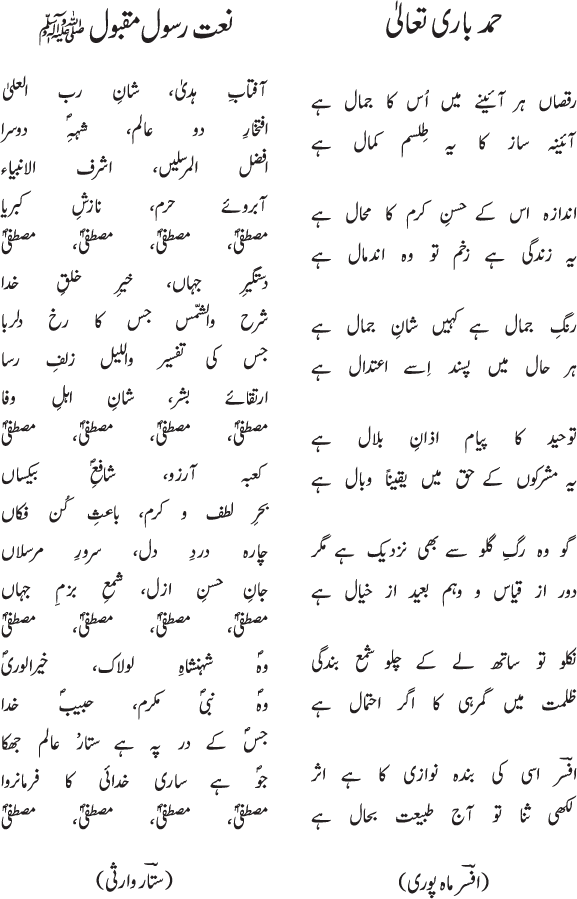 حمد باری تعالیٰ
رقصاں ہر آئینے میں اُس کا جمال ہے
آئینہ ساز کا یہ طِلسم کمال ہے
اندازہ اس کے حسنِ کرم کا محال ہے
یہ زندگی ہے زخم تو وہ اندمال ہے
رنگِ جمال ہے کہیں شانِ جمال ہے
ہر حال میں پسند اِسے اعتدال ہے
توحید کا پیام اذانِ بلال ہے
یہ مشرکوں کے حق میں یقیناً وبال ہے
گو وہ رگِ گلو سے بھی نزدیک ہے مگر
دور از قیاس و وہم بعید از خیال ہے
نکلو تو ساتھ لے کے چلو شمع بندگی
ظلمت میں گمرہی کا اگر احتمال ہے
افسرؔ اسی کی بندہ نوازی کا ہے اثر
لکھی ثنا تو آج طبیعت بحال ہے
(افسرؔ ماہ پوری)
نعت رسول مقبول ﷺ
آفتابِ ہدیٰ، شانِ رب العلیٰ
افتخارِ دو عالم، شہہِؐ دوسرا
افضل المرسلیں، اشرف الانبیاء
آبروئے حرم، نازشِ کبریا
مصطفیٰؐ، مصطفیٰؐ، مصطفیٰؐ، مصطفیٰؐ
دستگیرِ جہاں، خیرِ خلقِ خدا
شرح والشمّس جس کا رخ دلربا
جس کی تفسیر واللیل زلفِ رسا
ارتقائے بشر، شانِ اہلِ وفا
مصطفیٰؐ، مصطفیٰؐ، مصطفیٰؐ، مصطفیٰؐ
کعبہ آرزو، شافعِؐ بیکساں
بحرِ لطف و کرم، باعثِ کُن فکاں
چارہ دردِ دل، سرورِ مرسلاں
جانِ حسنِ ازل، شمعِ بزمِ جہاں
مصطفیٰؐ، مصطفیٰؐ، مصطفیٰؐ، مصطفیٰؐ
وہؐ شہنشاہِ لولاک، خیرالوریٰؐ
وہؐ نبیؐ مکرم، حبیبؐ خدا
جسؐ کے در پہ ہے ستارؔ عالم جھکا
جوؐ ہے ساری خدائی کا فرمانروا
مصطفیٰؐ، مصطفیٰؐ، مصطفیٰؐ، مصطفیٰؐ
(ستارؔ وارثی)